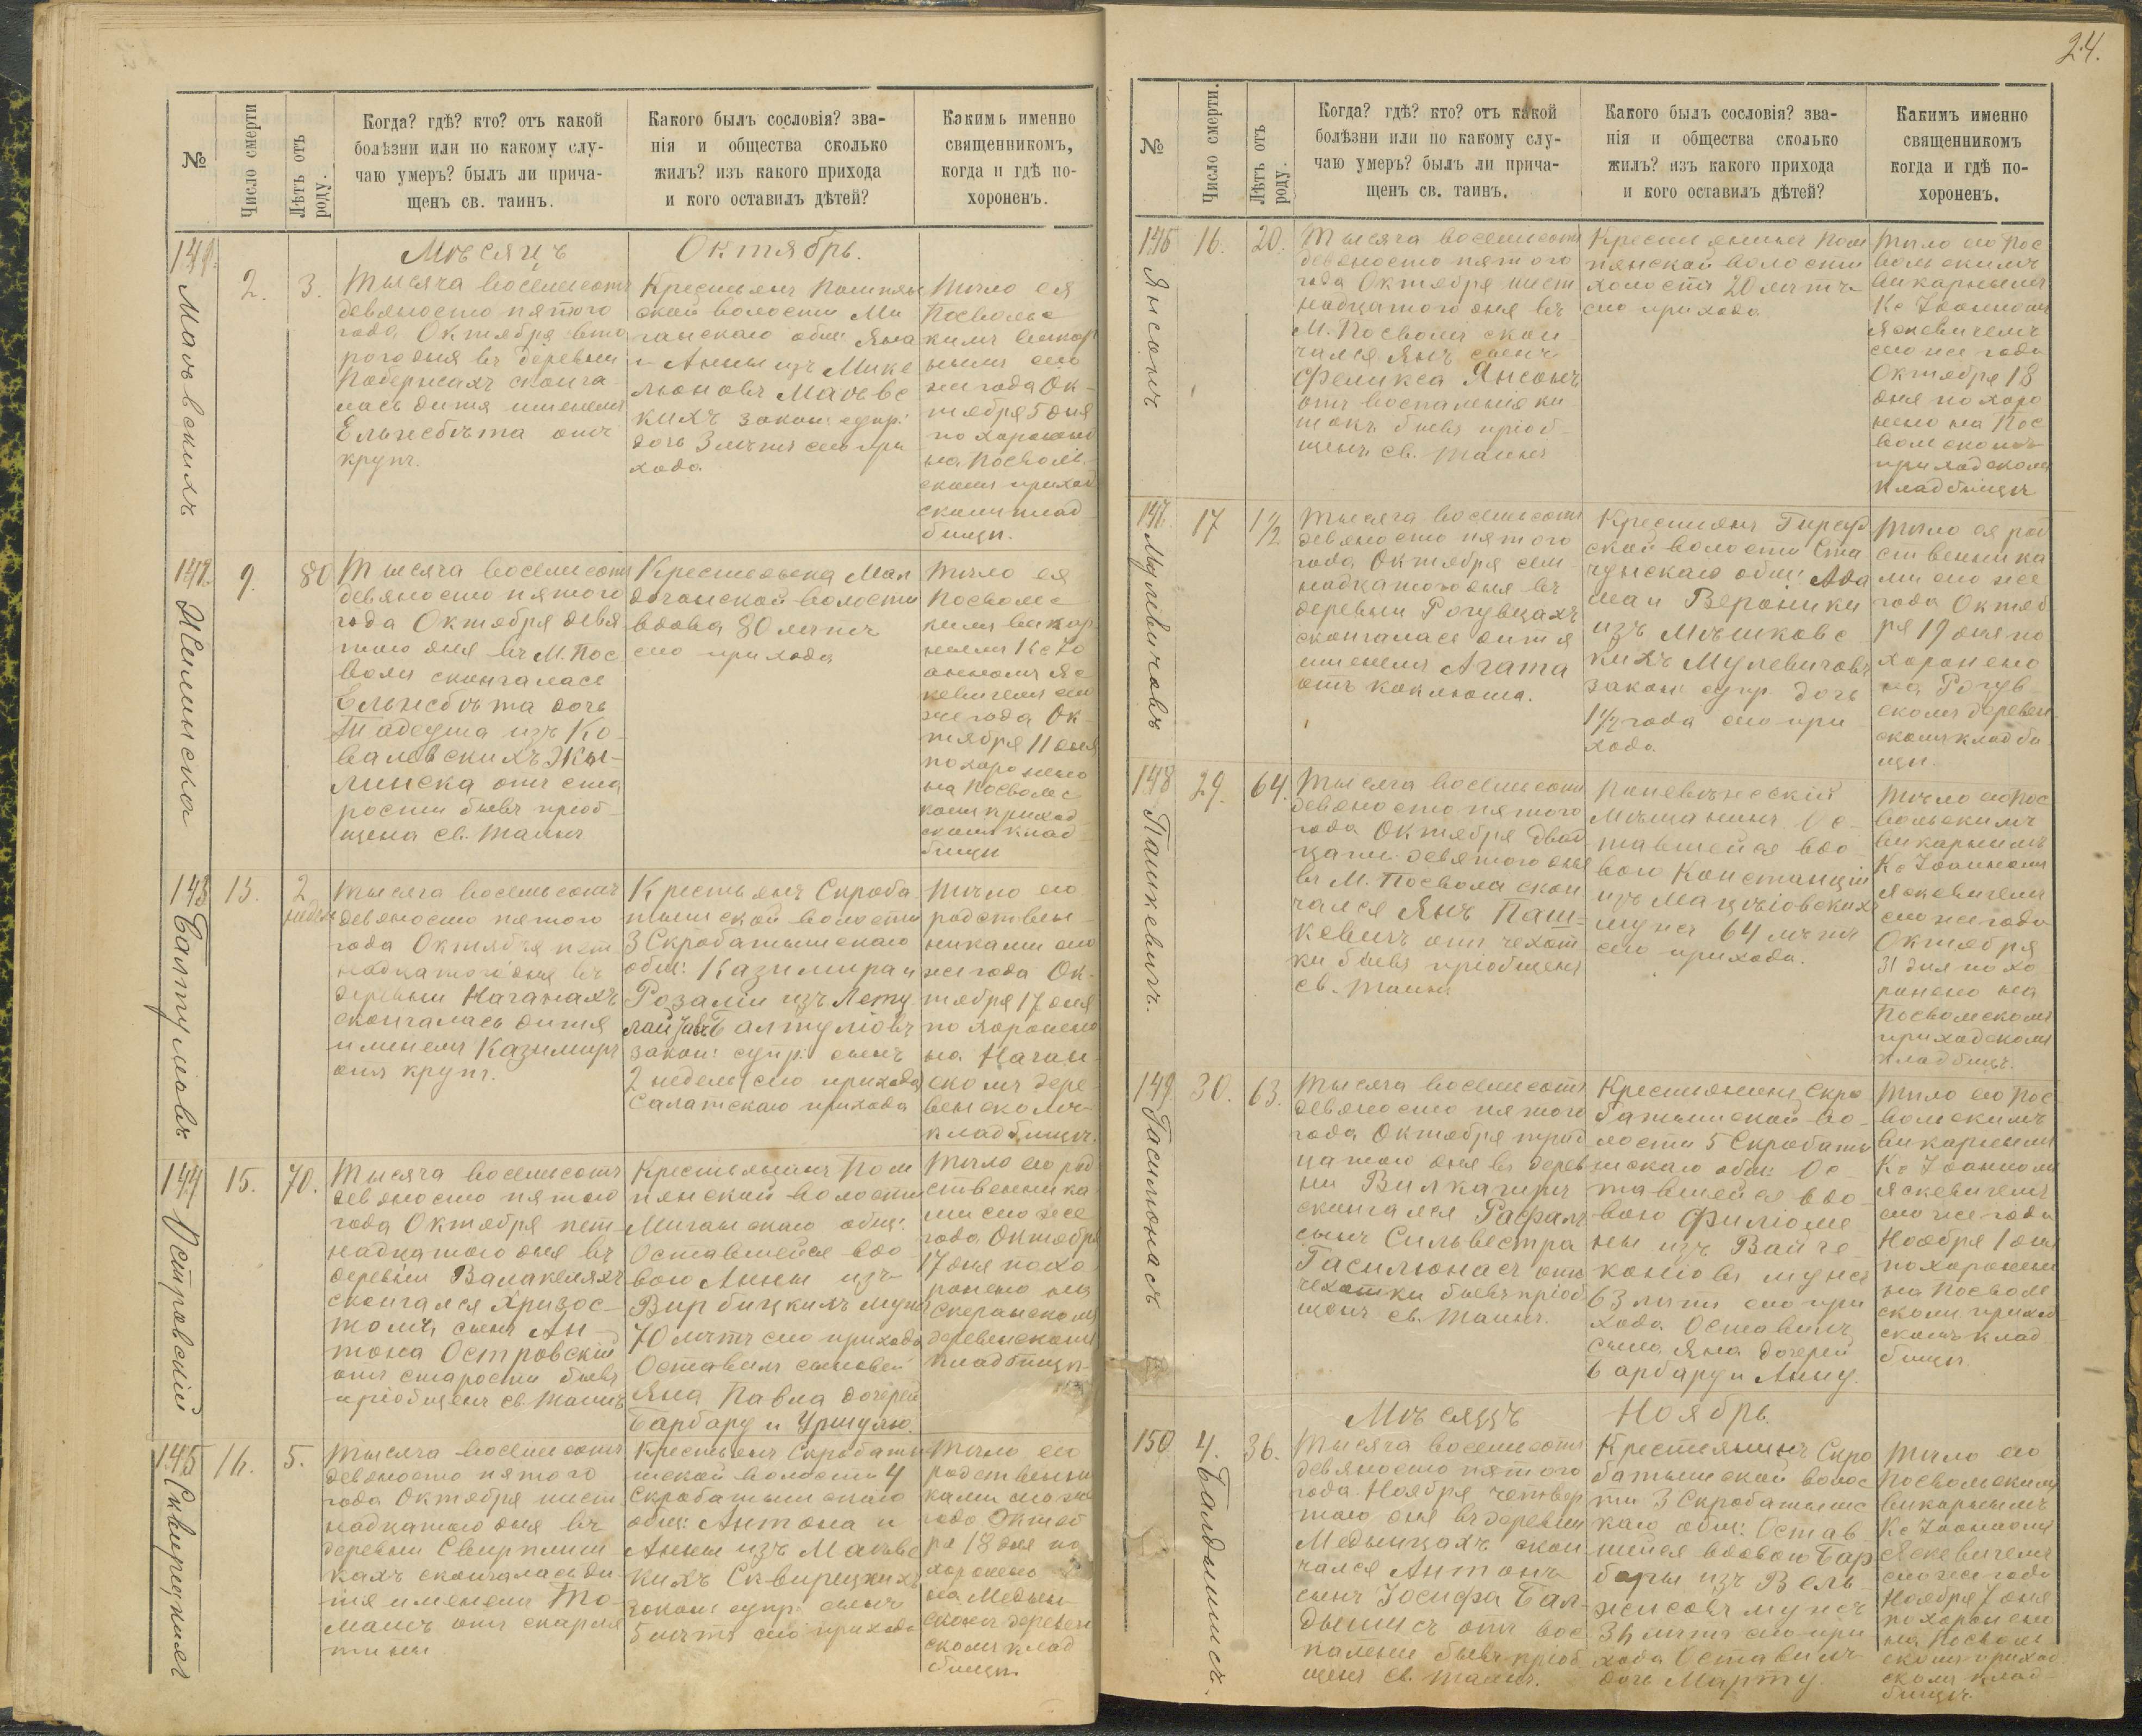 24.
№
Число смерти
Лѣтъ отъ роду.
Когда? гдѣ? кто? отъ какой
болѣзни или по какому слу-
чаю умеръ? былъ ли прича-
щенъ св. таинъ.
Какого былъ сословія? зва-
нія и общества сколько
жилъ? изъ какого прихода
и кого оставилъ дѣтей?
Какимъ именно
священникомъ,
когда и гдѣ по-
хороненъ.
Мѣсяцъ Октябрь.
141.
2.
3.
Тысяча восемьсотъ
девяносто пятого
года Октября вто
рого дня въ деревни
сконча
лась дитя именемъ
Ельжебѣта отъ
крупъ.
Крестьянъ
ской волости Ми
ганскаго общ: Яна
и Анны изъ Мике
люновъ
кихъ закон: супр:
дочь 3 лѣтъ сего при
хода
Тѣло ея
Посволь
кимъ викар
нымъ сего
же года Ок-
тября 5 дня
похоронено
на Посволь
скомъ приход
скомъ клад
бищи.
142.
Жилинска
9.
80
Тысяча восемьсотъ
девяносто пятого
года Октября девя
таго дня въ М. Пос
воли скончалась
Ельжебѣта дочь
Тадеуша изъ Ко-
валевскихъ Жы-
линска отъ ста
рости бывъ пріоб-
щена св. таинъ
Крестьянка
волости
вдова 80 лѣтъ
сего прихода
Тѣло ея
Посволь
кимъ викар
нымъ Кс Іо
анномъ Яс
кевичемъ сего
же года Ок-
тября 11 дня
похоронено
на Посволь
комъ приход
скомъ клад
бищи
143
Балтулюовъ
15.
2 недѣли
Тысяча восемьсотъ
девяносто пятого
года Октября пят
надцатого дня въ
деревни Наганахъ
скончалась дитя
именемъ Казимиръ
отъ крупъ.
Крестьянъ Скроба
тышской волости
3 Скробатышскаго
общ: Казимира и
Розаліи изъ
Балтуліовъ
закон: супр: сынъ
2 недели сего прихода
Салатскаго прихода
Тѣло его
родствен-
никами сего
же года Ок-
тября 17 дня
похоронено
на Наган-
скомъ дере
венскомъ
кладбищи.
144
Островскій
15.
70.
Тысяча восемьсотъ
девяносто пятого
года Октября пят
надцатого дня въ
деревни Валакеляхъ
скончался Хризос-
томъ сынъ Ан-
тона Островскій
отъ старости бывъ
пріобщенъ св. таинъ
Крестьянинъ Пом
пянской волости
Миганскаго общ:
Оставшейся вдо
вою Анны изъ
Вирбицкихъ мужъ
70 лѣтъ сего прихода
Оставилъ сыновей
Яна Павла дочерей
Барбару и Уршулю.
Тѣло его род
ственника
ми сего же
года Октября
17 дня похо
ронено на
деревенскомъ
кладбищи
145
Сквирецкихъ
16.
5.
Тысяча восемьсотъ
девяносто пятого
года Октября шест
надцатого дня въ
деревни Свирплиш
кахъ скончалась ди-
тя именемъ То-
машъ отъ скарля
тины
Крестьянъ Скробаты
шской волости 4
Скробатышскаго
общ: Антона и
Анны изъ
кихъ Сквирецкихъ
закон: супр: сынъ
5 лѣтъ сего прихода
Тѣло его
родственни
ками сего же
года Октяб
ря 18 дня по
хоронено
на Медын-
скомъ деревен
скомъ клад
бищи.
№
Число смерти.
Лѣтъ отъ роду.
Когда? гдѣ? кто? отъ какой
болѣзни или по какому слу-
чаю умеръ? былъ ли прича-
щенъ св. таинъ.
Какого былъ сословія? зва-
нія и общества сколько
жилъ? изъ какого прихода
и кого оставилъ дѣтей?
Какимъ именно
священникомъ
когда и гдѣ по-
хороненъ.
146
Янсонъ
16.
20.
Тысяча восемьсотъ
девяносто пятого
года Октября шест
надцатого дня въ
М. Посволи скон
чался Янъ сынъ
Феликса Янсонъ
отъ воспаленія ки
шокъ бывъ пріоб-
щенъ св. таинъ
Крестьянинъ Пом
пянской волости
холостъ 20 лѣтъ
сего прихода
Тѣло его Пос
вольскимъ
викарнымъ
Кс Іоанномъ
Яскевичемъ
сего же года
Октября 18
дня похоро
нено на Пос
вольскомъ
приходскомъ
кладбищи
147.
Мулевичовъ
17
1 1/2
Тысяча восемьсотъ
девяносто пятого
года Октября сем
надцатого дня въ
деревни Рогувцахъ
скончалась дитя
именемъ Агата
отъ коклюша.
Крестьянъ
ской волости
общ: Ада
ма и Вероники
изъ Мѣшковс
кихъ Мулевичовъ
закон: супр: дочь
1 1/2 года сего при-
хода
Тѣло ея род
ственника
ми сего же
года Октяб
ря 19 дня по
хоронено
на Рогув
скомъ деревен
скомъ кладби
щи.
148
Пашкевичъ.
29.
64.
Тысяча восемьсотъ
девяносто пятого
года Октября двад
цати девятого дня
въ М. Посволи скон
чался Янъ Паш-
кевичъ отъ чехот
ки бывъ пріобщенъ
св. таинъ
Поневѣжскій
Мѣщанинъ Ос-
тавшейся вдо
вою Констанціи
изъ Мацѣіовскихъ
мужъ 64 лѣтъ
сего прихода.
Тѣло его Пос
вольскимъ
викарнымъ
Кс Іоанномъ
Яскевичемъ
сего же года
Октября
31 дня похо
ронено на
Посвольскомъ
приходскомъ
кладбищѣ.
149.
Гасилюнасъ
30.
63.
Тысяча восемьсотъ
девяносто пятого
года Октября трид
цатого дня въ дерев
ни
скончался Рафалъ
сынъ Сильвестра
Гасилюнасъ отъ
чехотки бывъ пріоб
щенъ св. таинъ.
Крестьянинъ Скро
батышской во-
лости 5 Скробаты
шскаго общ: Ос-
тавшейся вдо-
вою Филіоме
ны изъ Вайче
коніовъ мужъ
63 лѣтъ сего при
хода Оставилъ
сына Яна дочерей
Барбару и Анну.
Тѣло его Пос
вольскимъ
викарнымъ
Кс Іоанномъ
Яскевичемъ
сего же года
Ноября 1 дня
похоронено
на Посволь
скомъ приход
скомъ клад
бищи
Мѣсяцъ Ноябрь.
150
Балдышисъ.
4.
36.
Тысяча восемьсотъ
девяносто пятого
года Ноября четвер
таго дня въ деревни
Медынцахъ скон
чался Антонъ
сынъ Іосифа Бал-
дышисъ отъ вос
паленія бывъ пріоб
щенъ св. таинъ.
Крестьянинъ Скро
батышской волос
ти 3 Скробатышс
каго общ: Остав
шейся вдовою Бар
бары изъ Вель-
жисовъ мужъ
36 лѣтъ сего при
хода Оставилъ
дочь Марту.
Тѣло его
Посвольскимъ
викарнымъ
Кс Іоанномъ
Яскевичемъ
сего же года
Ноября 7 дня
похоронено
на Посволь
скомъ приход
скомъ клад
бищи.